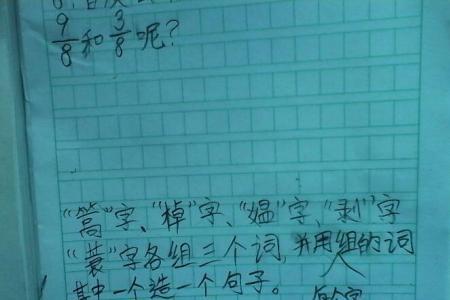 9/8和3/8呢？
“蒿”字、“棹”字、“媪”字、“剥”字
“蓑”字各组三个词，并用组的词
其中一个造一个句子。